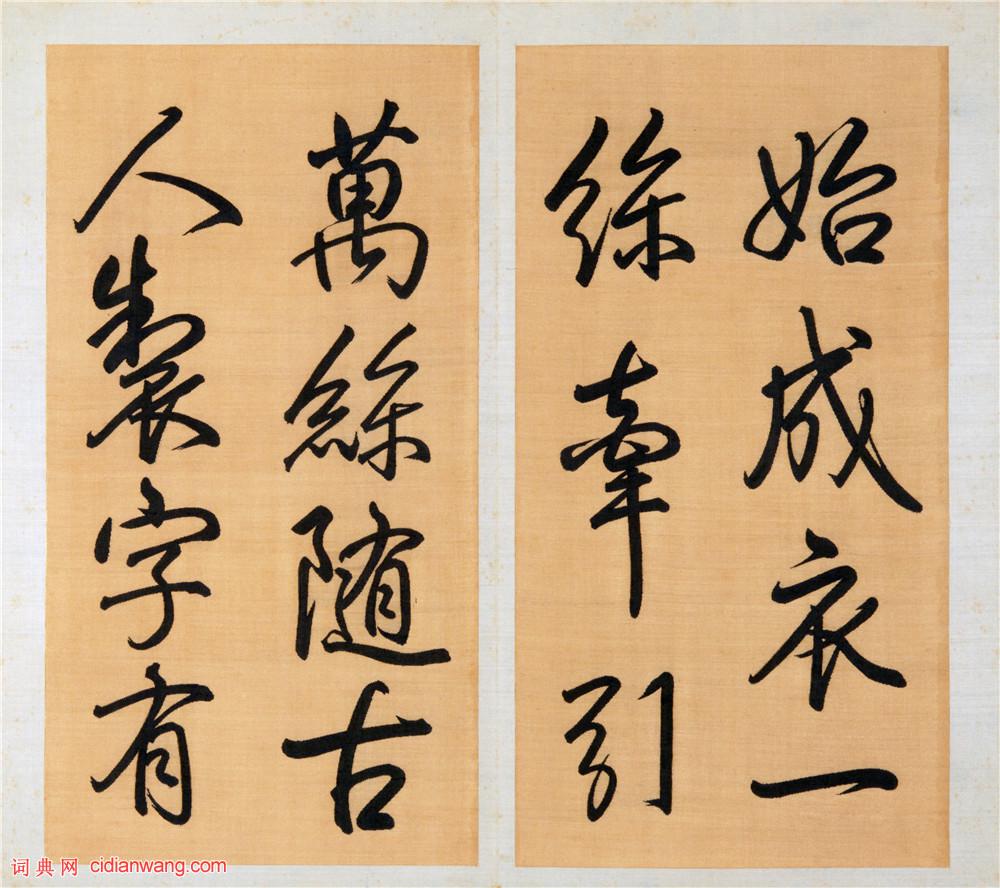 始成衣一
絲牽引
萬絲随古
人製字有
词典网 cidianwang.com